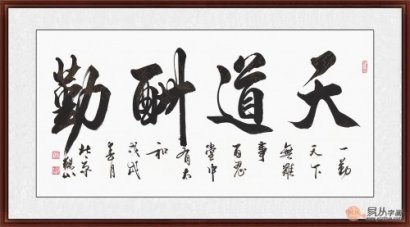 天道酬勤
一勤
天下
無難
事
百忍
堂中
有太
和
戊戌
春月
北京
易从字画